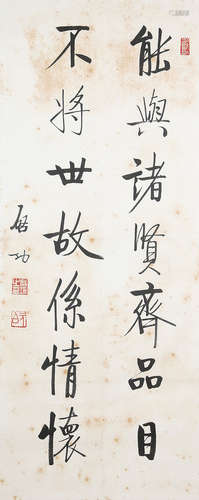 能與諸賢齊品目
不將世故係情懷
启功